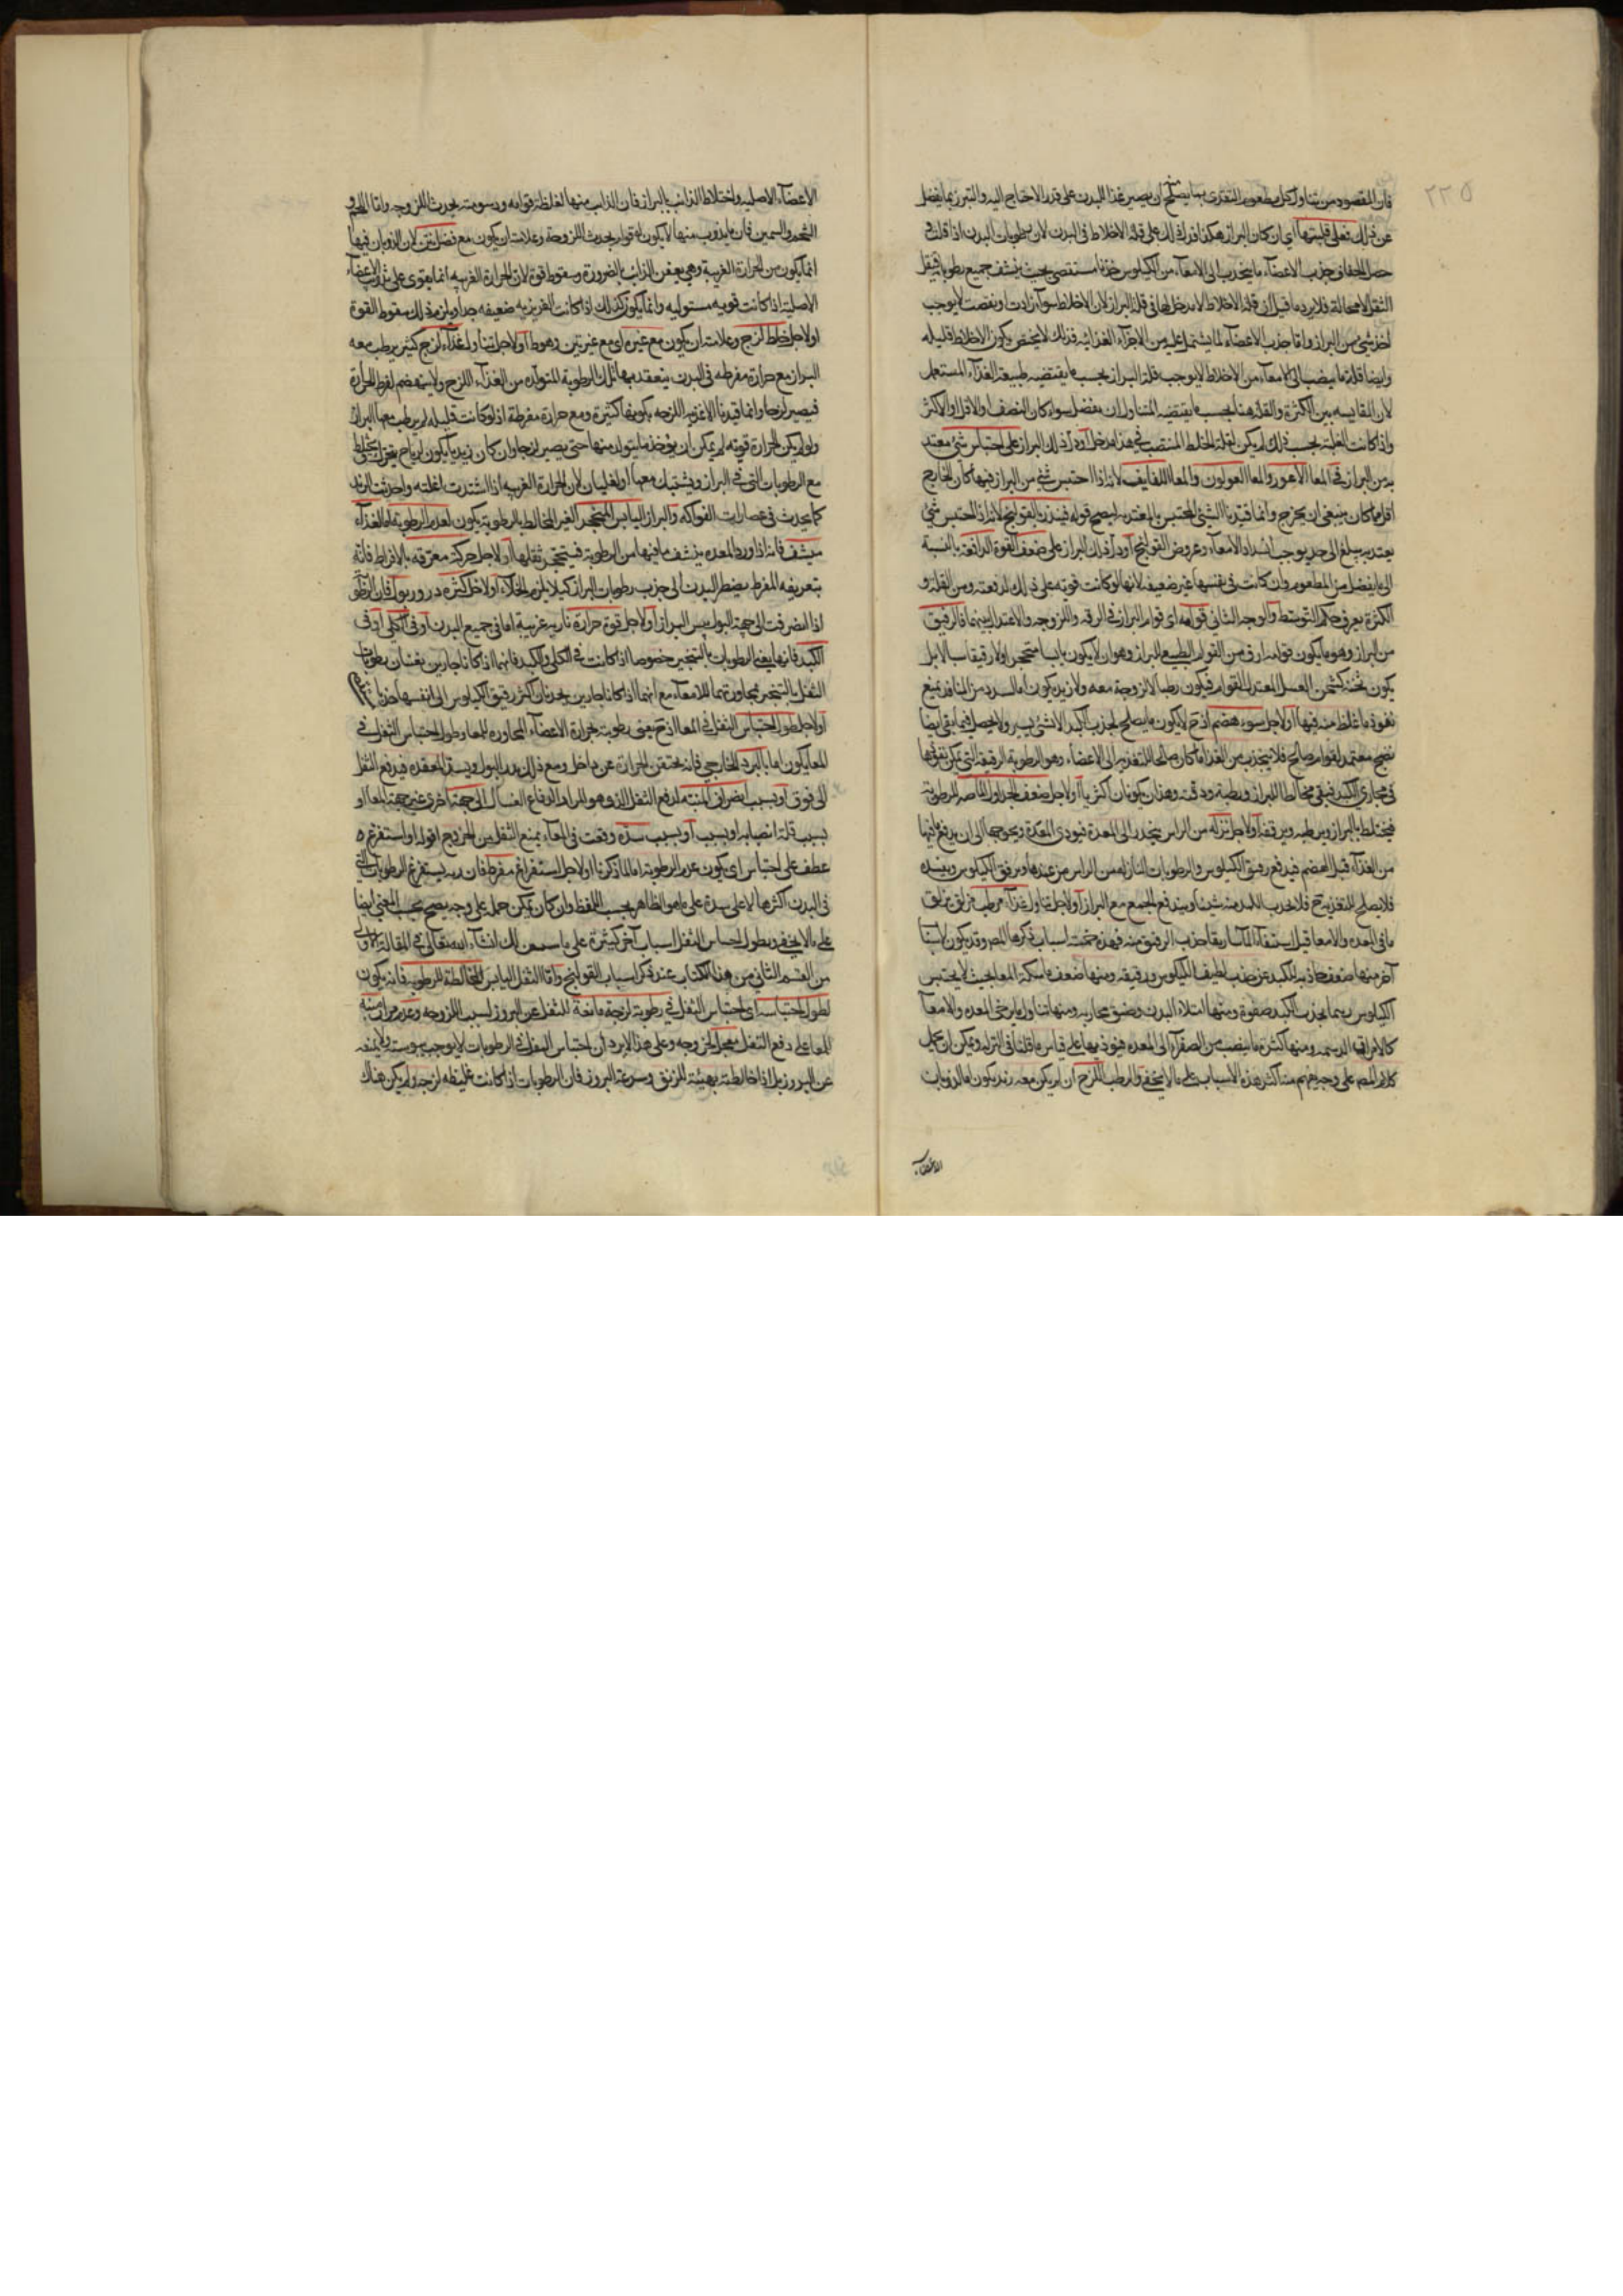 ٢٢٥
فان المقصود من تناول كل مطعوم التغذى بما يصلح ان يصير غذا للبدن على قدر الاحتياج اليه والتبرز بما يفضل
عن ذلك فعلى قليتها اى ان كان البراز هكذا فدل ذلك على قلة الاخلاط فى البدن لان رطوبات البدن اذا قلت
حصل الجفاف جذب الاعضآء ما ينجذب الى الامعآء من الكيلوس جذبا مستقصى بحيث ينشف جميع رطوبات الثفل
الثفل لا محالة فلا يرد ما قيل ان قلة الاخلاط لا مدخل لها فى قلة البراز لان الاخلاط سوآ زادت او نقصت لا يوجب
شئ من البراز واما جذب الاعضآء لما يشتمل عليه من الاجزآء الغذائيه فذلك لا يختص بكون الاخلاط قليله
وايضا قلة ما ينصب الى الامعآء من الاخلاط لا يوجب قلة البراز بحسب ما يقتضيه طبيعة الغذآء المستعمل
لان المقايسه بين الكثرة والقلة هنا بحسب ما يقتضيه المتناول ان يفضل سواء كان النصف او الاقل او الاكثر
واذا كانت القلة بحسب ذلك لم يكن لقلة الخلط المنصب فى هذا مدخل او دل ذلك البراز على احتباس شئ معتد
به من البراز فى المعا الاعور والمعا القولون والمعا اللفايف لانه اذا احتبس شئ من البراز فيها كان الخارج
اقل مما كان ينبغى ان يخرج وانما قيدنا الشئ المحتبس بالمعتد به ليصح قوله فينذر بالقولنج لانه اذا احتبس شئ
يعتد به يبلغ الى حد يوجب انسداد الامعآء وعروض القولنج او دل ذلك البراز على ضعف القوة الدافعة بالنسبة
الى ما يفضل من المطعوم وان كانت فى نفسها غير ضعيفه لانها لو كانت قويه على ذلك لدفعته ومن القلة و
الكثرة يعرف حكم التوسط والوجه الثانى قوامه اى قوام البراز فى الرقه واللزوجه والاعتدال بينهما فالرقيق
من البراز وهو ما يكون قوامه ارق من القوام الطبيعى للبراز وهو ان لا يكون يابسا متحجرا ولا رقيقا سيالا بل
يكون ثخنه كثخن العسل المعتدل القوام فيكون رطبا لا لزوجة معه ولا زبد يكون اما لسدد من المنافذ تمنع
نفوذ ما غلظ منه فيها او لاجل سوء هضم اذ ح لا يكون ما يصلح لجذب الكبد الا شئ يسير ولا يحصل فيما بقى ايضا
نضج معتد به وقوام صالح فلا ينجذب من الغذا ما كان صالحا للتغذيه الى الاعضآء وهو الرطوبة الرقيقة التى يمكن نفوذها
فى مجارى الكبد فيبقى مخالطا للبراز ويرطبه ودقته وهذان يكونان اكثريا او لاجل ضعف الجداول الماصه للرطوبة
فيختلط بالبراز ويرطبه ويرققه او لاجل نزله من الراس ينحدر الى المعدة فيوذى المعدة ويحوجها الى ان يدفع ما فيها
من الغذآء قبل الهضم فيدفع رقيق الكيلوس والرطوبات النازله من الراس من عندها ويرقق الكيلوس ويفسده
فلا يصلح للتغذيه ح فلا يجذب الكبد منه شيئا ويندفع الجميع مع البراز او لاجل تناول غذآء مرطب مزلق يزلق
ما فى المعده والامعا قبل استيفآء الماساريقا جذب الرقيق منه فهذه خمسة اسباب ذكرها المص وقد يكون لاسباب
آخر منها ضعف جاذبه الكبد عن جذب لطيف الكيلوس ورقيقه ومنها ضعف ماسكة المعا بحيث لا يحتبس
الكيلوس ريثما يجذب الكبد صفوة ومنها امتلاء البدن وضيق مجاريه ومنها تناول ما يرخى المعده والامعآ
كالامراق الدسمه ومنها كثرة ما ينصب من الصفرآء الى المعده فيوذيها على قياس ما قلنا فى النزله ويمكن ان يحمل
كلام المص على وجه يفهم منه اكثر هذه الاسباب على ما لا يخفى والرطب اللزج ان لم يكن معه زبد يكون اما لذوبان
الاعضآء
الاعضآء الاصليه واختلاط الذائب بالبراز فان الذائب منها لغلظ قوامه ودسومته يحدث اللزوجه واما اللحم و
الشحم والسمين فان ما يذوب منها لا يكون له قوام يحدث اللزوجة وعلامته ان يكون مع فضل نتن لان الذوبان فيها
انما يكون من الحرارة الغريبة وهى يعفن الذائب بالضرورة وسقوط قوة لان الحرارة الغريبه انما يقوى على تذويب الاعضآء
الاصليه اذا كانت قويه مستوليه وانما يكون كذلك اذا كانت الغريزيه ضعيفه جدا ويلزم ذلك سقوط القوة
او لاجل خلط لزج وعلامته ان يكون مع غيره اى مع غير نتن وهوط او لاجل تناول غذآء لزج كثير يرطب معه
البراز مع حرارة مفرطه فى البدن ينعقد بها تلك الرطوبة المتولده من الغذآء اللزج ولا ينهضم لفرط الحرارة
فيصير لزجا وانما قيدنا الاغذيه اللزجه بكونها كثيرة ومع حرارة مفرطة اذ لو كانت قليله لم يرطب معها البراز
ولو لم يكن الحرارة قويه لم يمكن ان يؤخذ ما يتولد منها حتى يصير لزجا وان كان زبديا يكون لرياح يغول يختلط
مع الرطوبات التى فى البراز ويشتبك معها او لغليان لان الحرارة الغريبه اذا اشتدت اغلته واحدثت الزبد
كما يحدث فى عصارات الفواكه والبراز اليابس المتحجر الغير المخالط بالرطوبة يكون لعدم الرطوبة اما لغذآء
منشف فانه اذا ورد المعده ينشف ما فيها من الرطوبة فيتحجر ثفلها او لاجل حركة معرقه بالافراط فانه
بتعريقه المفرط يضطر البدن الى جذب رطوبات البراز كيلا يلزم الخلآء او لاجل كثرة درور بول فان الرطوبات
اذا انصرفت الى جهة البول يبس البراز او لاجل قوة حرارة ناريه غريبه اما فى جميع البدن او فى الكلى او فى
الكبد فانها يفنى الرطوبات بالتبخير خصوصا اذا كانت فى الكلى والكبد فانهما اذا كانا حارين يفنيان رطوبات
الثفل بالتبخير لمجاورتهما للامعآء مع انهما اذا كانا حارين يجذبان اكثر رقيق الكيلوس الى انفسهما جذبا
او لاجل طول احتباس الثفل فى المعا اذ ح يفنى رطوبته بحرارة الاعضآء المجاوره للمعا وطول احتباس الثفل فى
المعا يكون اما بالبرد الخارجى فانه يحتقن الحرارة عن داخل ومع ذلك يدر البول ويسد المقعده فيدفع الثفل
الى فوق او بسبب انصراف المنبه لدفع الثفل الذى هو المرار الدفاع الغسال الى جهة اخرى غير جهة المعا او
بسبب قلة انصبابه او بسبب او بسبب سدة وقعت فى المعآء يمنع الثفل من الخروج قوله او استفرغ
عطف على احتباس اى يكون عدم الرطوبة اما لما ذكرنا او لاجل استفراغ مفرط فان به يستفرغ الرطوبات التى
فى البدن اكثرها لا على سدة على ما هو الظاهر بحسب اللفظ وان كان يمكن حمله على وجه يصح بحسب المعنى ايضا
على ما لا يخفى وبطول احتباس الثفل اسباب آخر كثيرة على ما سمعن لك انشآء الله تعالى فى المقالة الاولى
من القسم الثانى من هذا الكتاب عند ذكر اسباب القولنج واما الثفل اليابس المخالطة للرطوبه فانه يكون
لطول احتباسه اى احتباس الثفل فى رطوبة لزجة مانعة للثفل عن البروز بسبب اللزوجه وعدم مرار منبه
للمعا على دفع الثفل معجل لخروجه وعلى هذا لا يرد ان احتباس الثفل فى الرطوبات لا يوجب يبوسته ولا يمنعه
عن البروز بل اذا خالطته يهيئه للزلق وسرعة البروز فان الرطوبات اذا كانت غليظه لزجة ولم يكن هناك